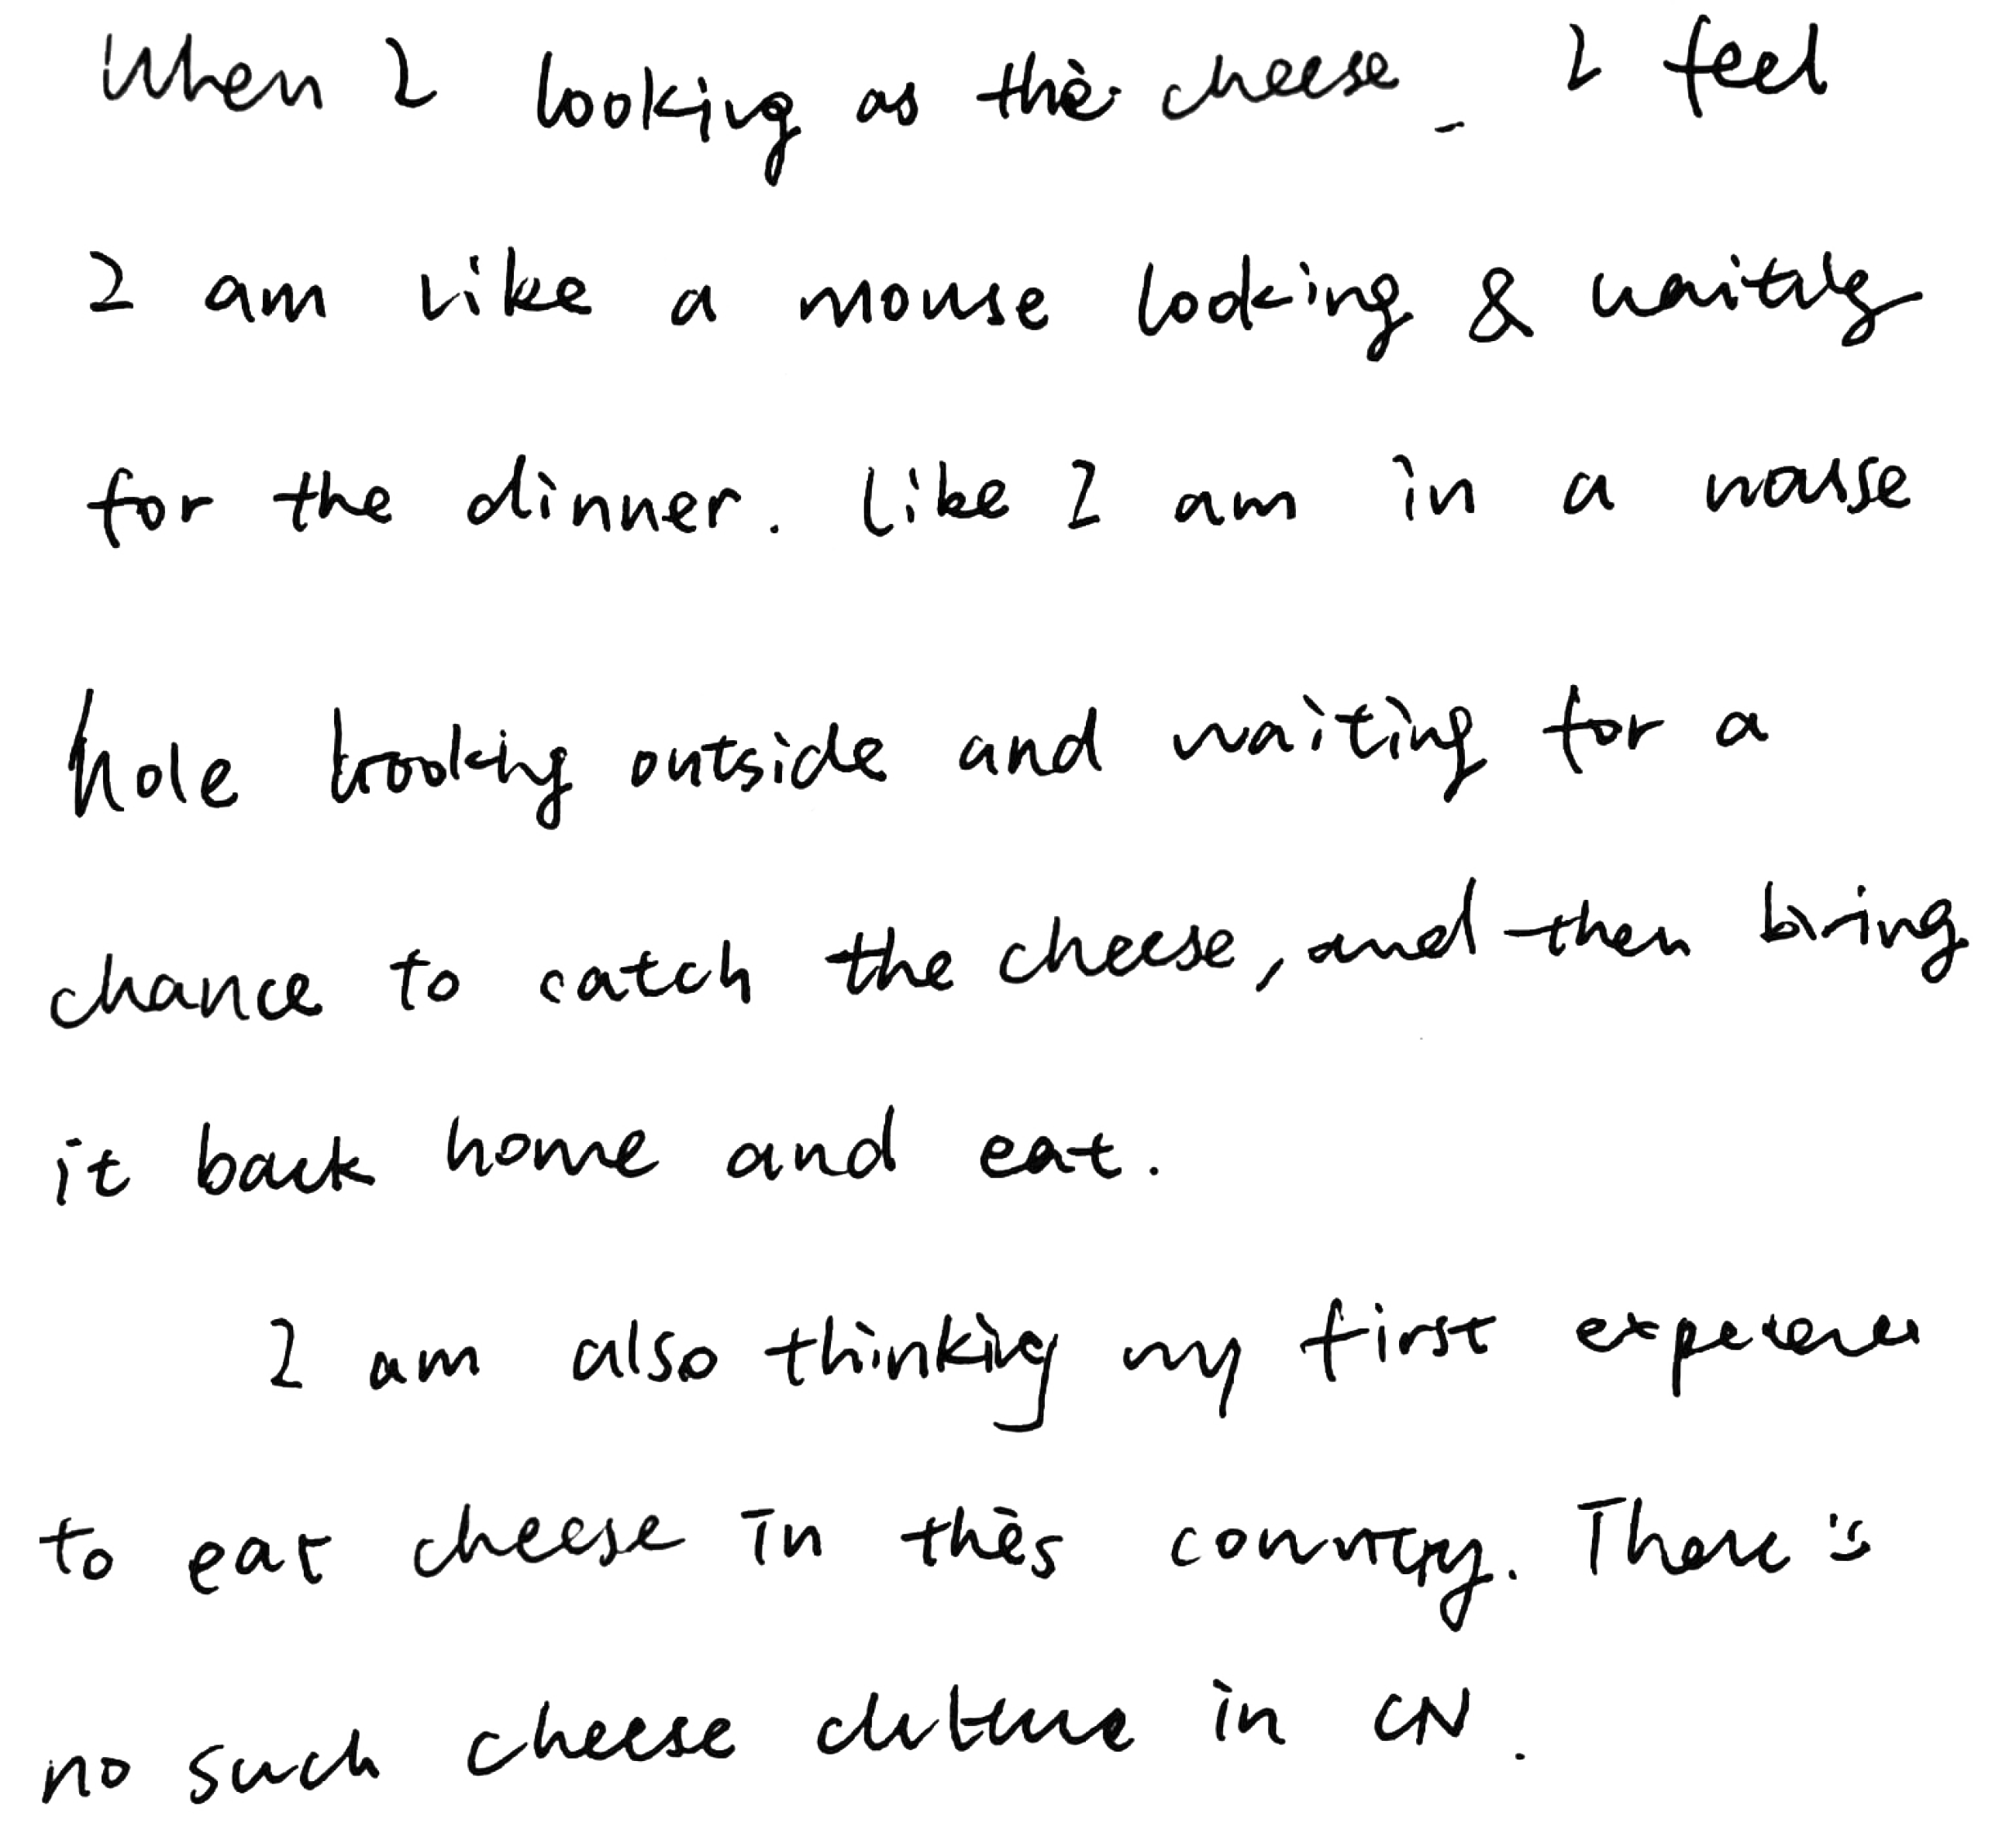 When I looking as the cheese, I feel
I am like a mouse looking & waiting
for the dinner. Like I am in a mouse
hole looking outside and waiting for a
chance to catch the cheese, and then bring
it back home and eat.
I am also thinking my first experience
to eat cheese in this country. There is
no such cheese culture in CN.